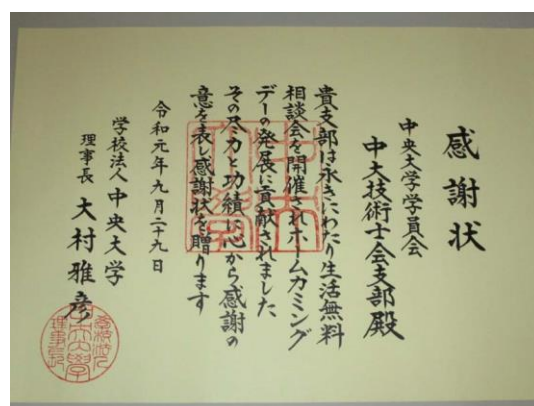 感謝状
中央大学学員会
中大技術士会支部殿
貴支部は永きにわたり生活無料
相談会を開催されホームカミング
デーの発展に貢献されました
その尽力と功績に心から感謝の
意を表し感謝状を贈ります
令和元年九月二十九日
学校法人中央大学
理事長 大村雅彦